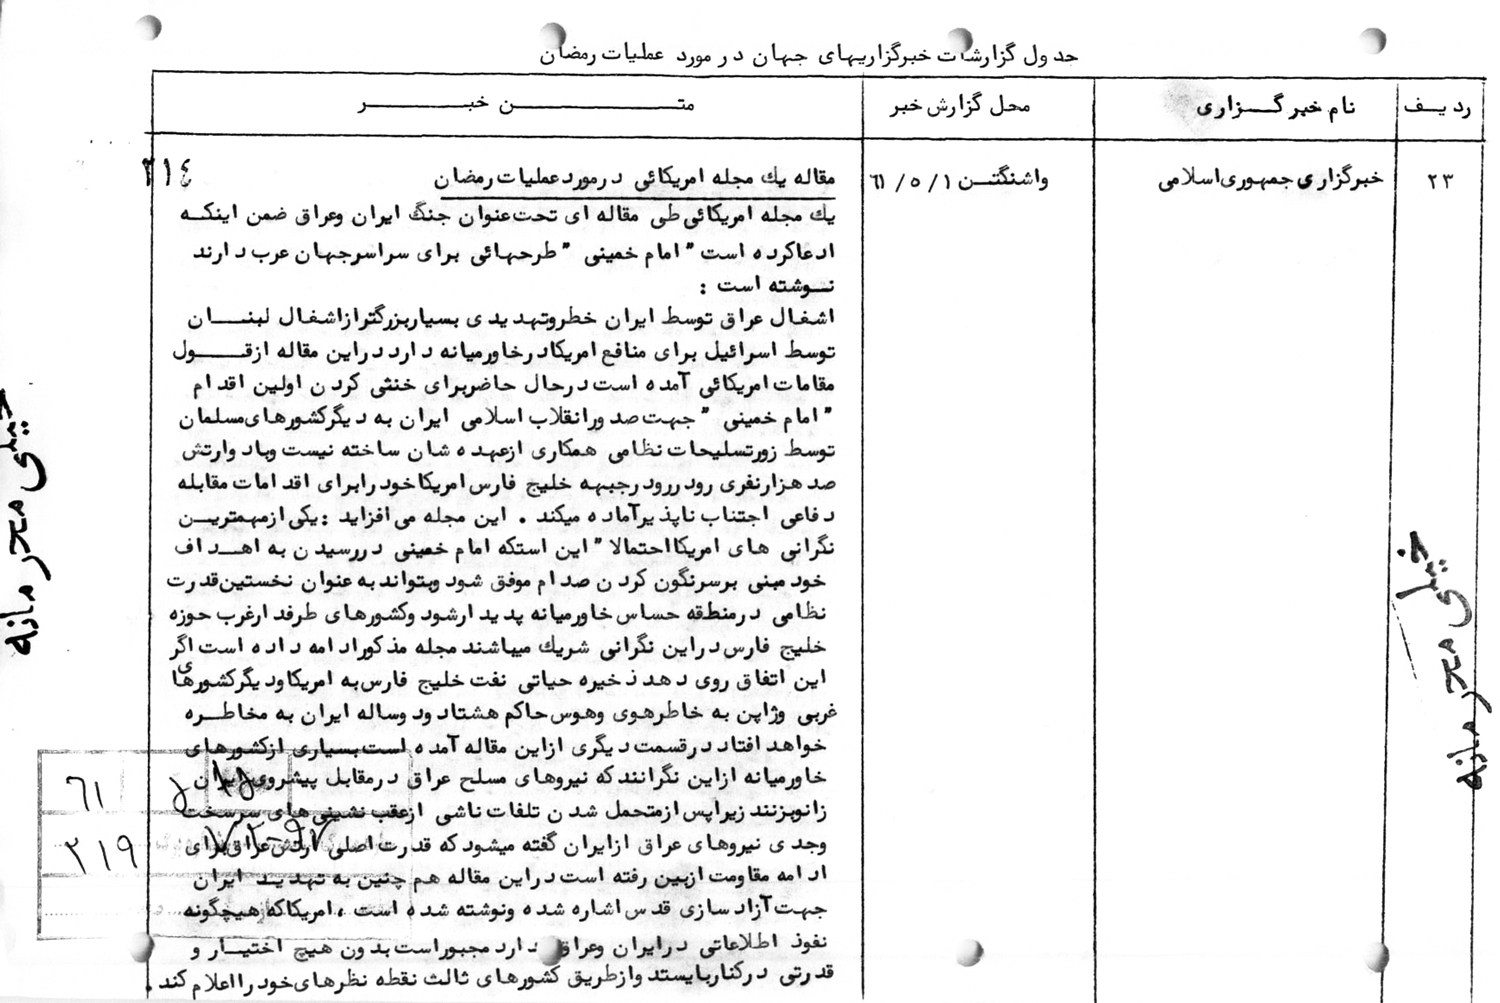 جدول گزارشات خبرگزاریهای جهان در مورد عملیات رمضان
ردیف
نام خبرگزاری
محل گزارش خبر
متن خبر
٢١٤
٢٣
خبرگزاری جمهوری اسلامی
واشنگتن ٦١/٥/١
مقاله یك مجله امریکائی در مورد عملیات رمضان
یك مجله امریکائی طی مقاله ای تحت عنوان جنگ ایران و عراق ضمن اینکه
ادعا کرده است " امام خمینی " طرحهائی برای سراسر جهان عرب دارند
نوشته است :
اشغال عراق توسط ایران خطر و تهدیدی بسیار بزرگتر از اشغال لبنان
توسط اسرائیل برای منافع امریکا در خاورمیانه دارد در این مقاله از قول
مقامات امریکائی آمده است در حال حاضر برای خنثی کردن اولین اقدام
" امام خمینی " جهت صدور انقلاب اسلامی ایران به دیگر کشورهای مسلمان
توسط زور تسلیحات نظامی همکاری از عهده شان ساخته نیست و با دو ارتش
صد هزار نفری رو در رو در جبهه خلیج فارس امریکا خود را برای اقدامات مقابله
دفاعی اجتناب ناپذیر آماده میکند . این مجله می افزاید : یکی از مهمترین
نگرانی های امریکا احتمالا " این استکه امام خمینی در رسیدن به اهداف
خود مبنی بر سرنگون کردن صدام موفق شود و بتواند به عنوان نخستین قدرت
نظامی در منطقه حساس خاورمیانه پدیدار شود و کشورهای طرفدار غرب حوزه
خلیج فارس در این نگرانی شریك میباشند مجله مذکور ادامه داده است اگر
این اتفاق روی دهد ذخیره حیاتی نفت خلیج فارس به امریکا و دیگر کشورهای
غربی و ژاپن به خاطر هوی و هوس حاکم هشتاد و دو ساله ایران به مخاطره
خواهد افتاد در قسمت دیگری از این مقاله آمده است بسیاری از کشورهای
خاورمیانه از این نگرانند که نیروهای مسلح عراق در مقابل پیشروی ایران
زانو بزنند زیرا پس از متحمل شدن تلفات ناشی از عقب نشینی های سرسخت
وجدی نیروهای عراق از ایران گفته میشود که قدرت اصلی ارتش عراق برای
ادامه مقاومت از بین رفته است در این مقاله هم چنین به تهدید ایران
جهت آزاد سازی قدس اشاره شده و نوشته شده است ، امریکا که هیچگونه
نفوذ اطلاعاتی در ایران و عراق دارد مجبور است بدون هیچ اختیار و
قدرتی در کنار بایستد و از طریق کشورهای ثالث نقطه نظرهای خود را اعلام کند .
خیلی محرمانه
خیلی محرمانه
٦١
٢١٩